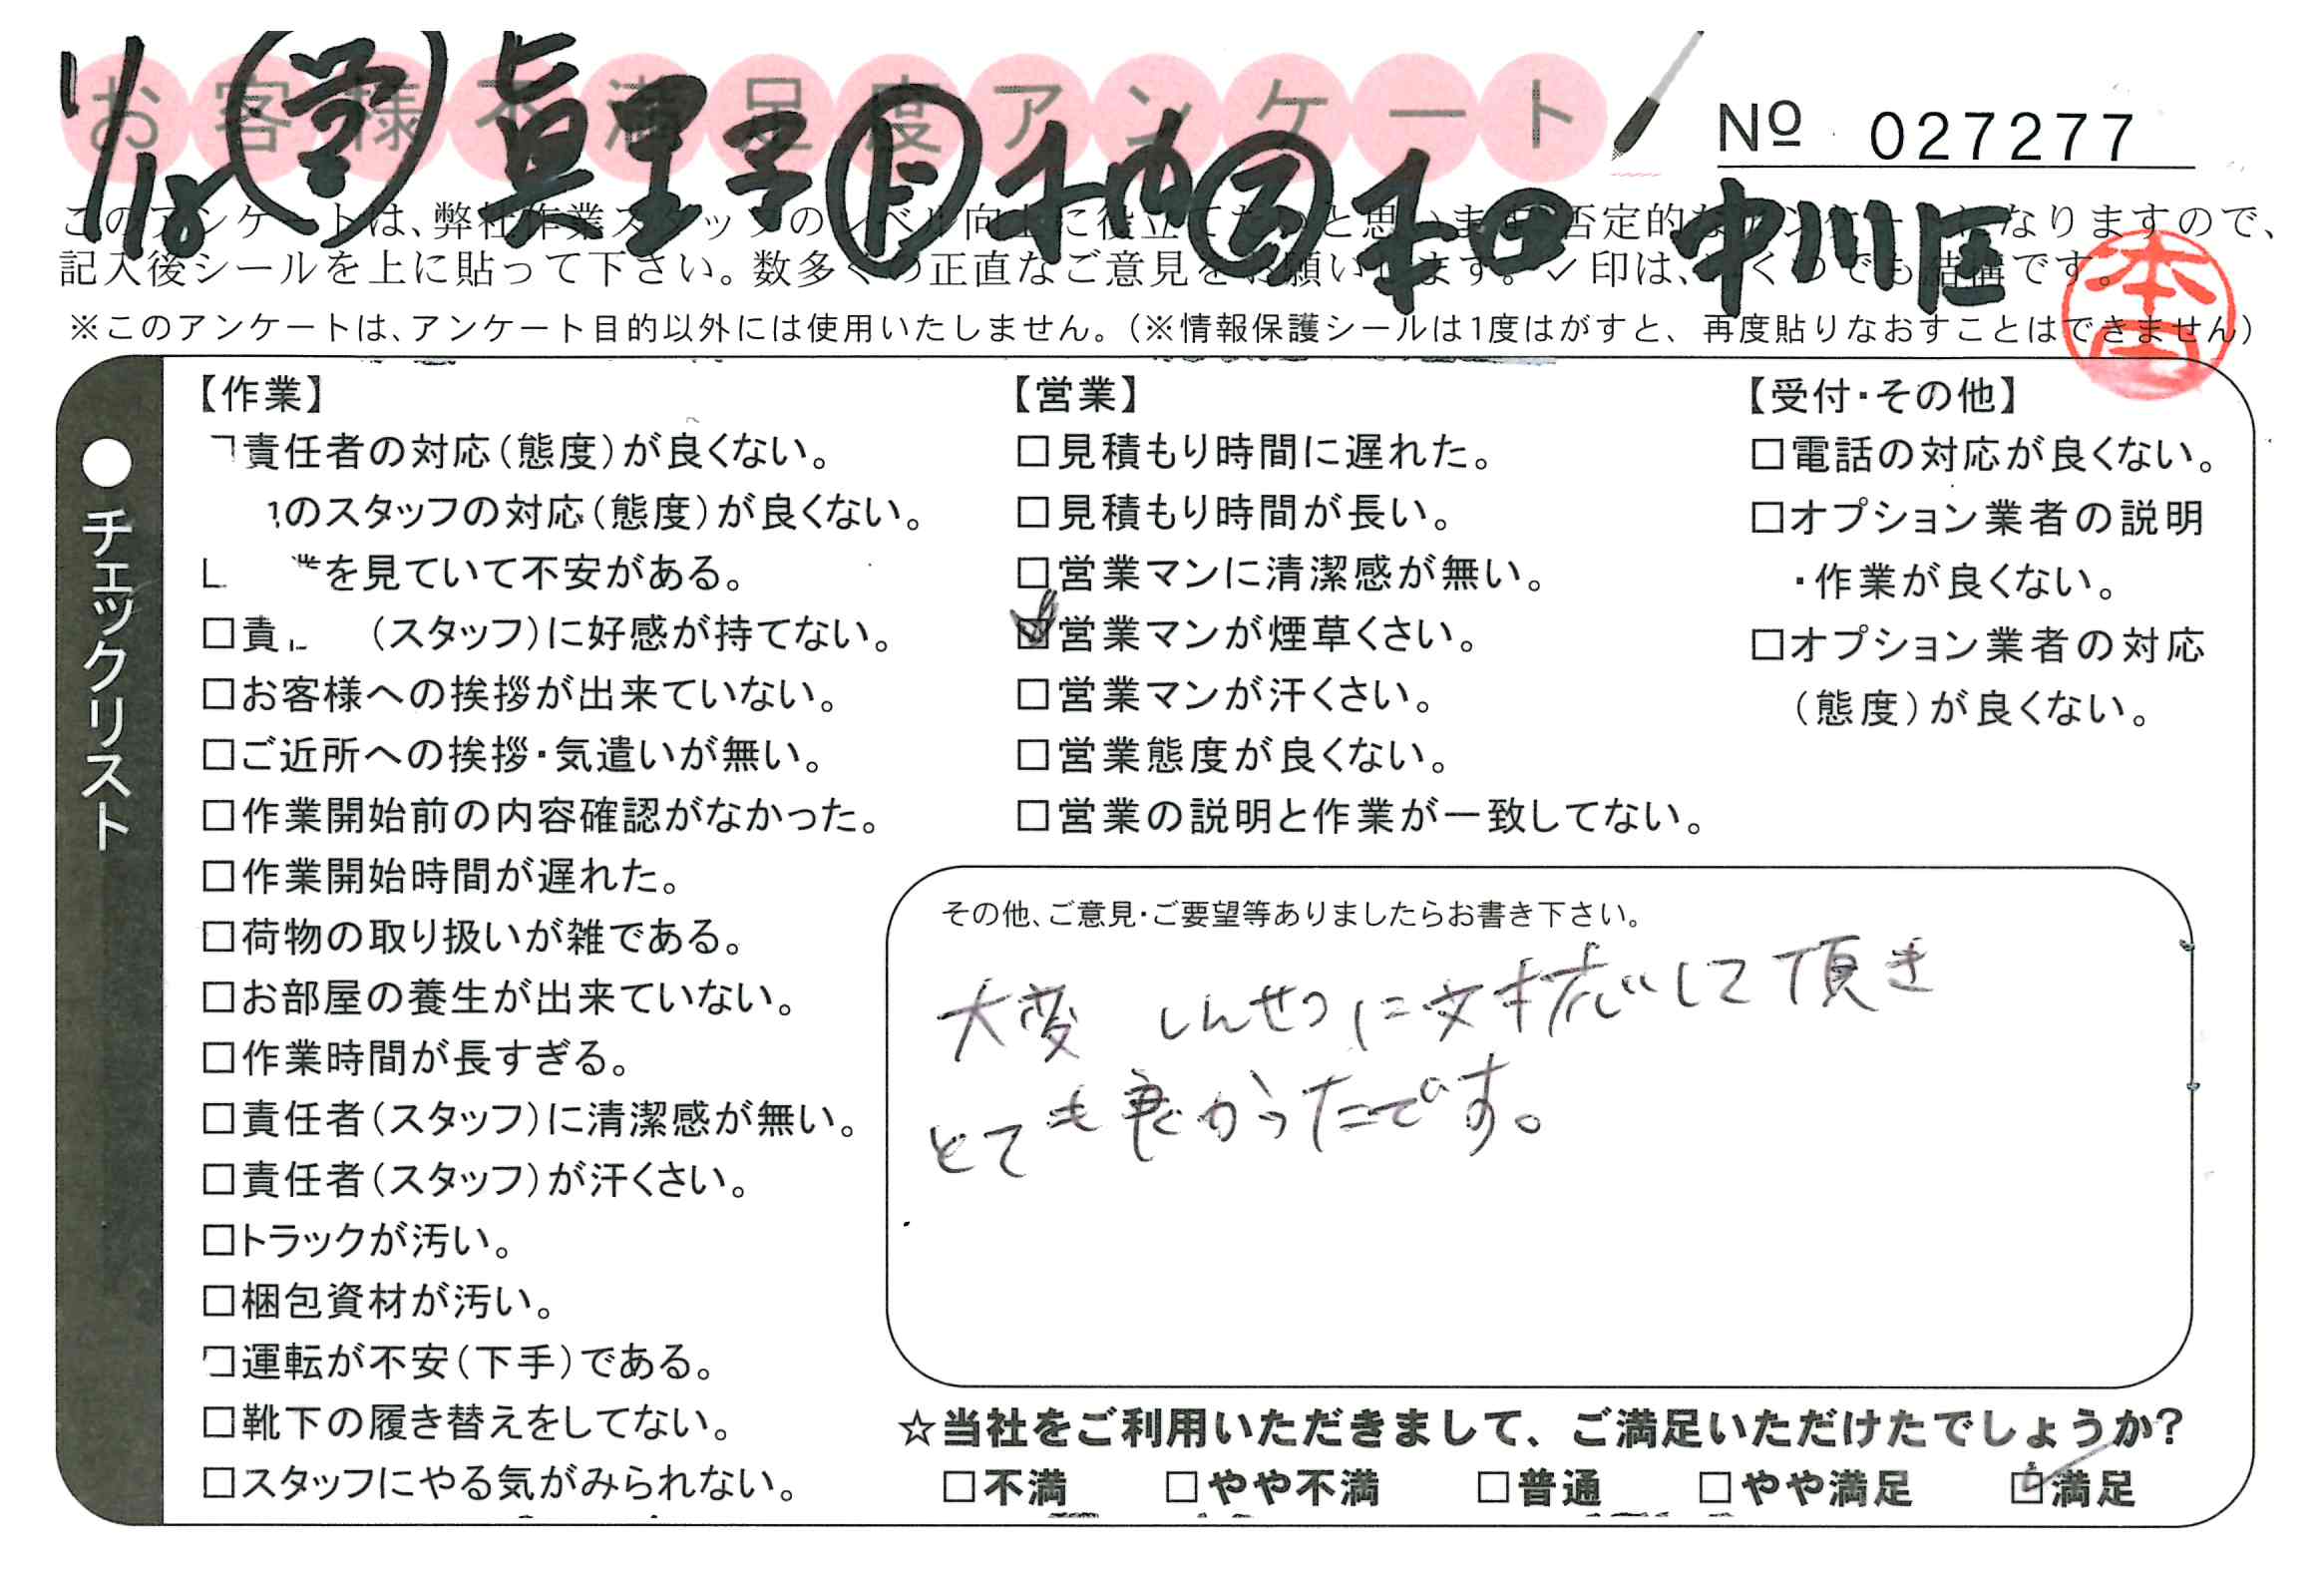 お客様不満足度アンケート
Nº 027277
11/18 堂 眞里子 ト 本田 中川区
このアンケートは、弊社作業スタッフのレベル向上に役立て と思いま 否定的な なりますので、
記入後シールを上に貼って下さい。数多くの正直なご意見をお願いします。✓印は、いくつでも結構です。
※このアンケートは、アンケート目的以外には使用いたしません。（※情報保護シールは1度はがすと、再度貼りなおすことはできません）
本田
●チェックリスト
【作業】
□責任者の対応（態度）が良くない。
のスタッフの対応（態度）が良くない。
業を見ていて不安がある。
□責 （スタッフ）に好感が持てない。
□お客様への挨拶が出来ていない。
□ご近所への挨拶・気遣いが無い。
□作業開始前の内容確認がなかった。
□作業開始時間が遅れた。
□荷物の取り扱いが雑である。
□お部屋の養生が出来ていない。
□作業時間が長すぎる。
□責任者（スタッフ）に清潔感が無い。
□責任者（スタッフ）が汗くさい。
□トラックが汚い。
□梱包資材が汚い。
□運転が不安（下手）である。
□靴下の履き替えをしてない。
□スタッフにやる気がみられない。
【営業】
□見積もり時間に遅れた。
□見積もり時間が長い。
□営業マンに清潔感が無い。
☑営業マンが煙草くさい。
□営業マンが汗くさい。
□営業態度が良くない。
□営業の説明と作業が一致してない。
【受付・その他】
□電話の対応が良くない。
□オプション業者の説明
・作業が良くない。
□オプション業者の対応
（態度）が良くない。
その他、ご意見・ご要望等ありましたらお書き下さい。
大変 しんせつに対応して頂き
とても良かったです。
☆当社をご利用いただきまして、ご満足いただけたでしょうか？
□不満 □やや不満 □普通 □やや満足 ☑満足